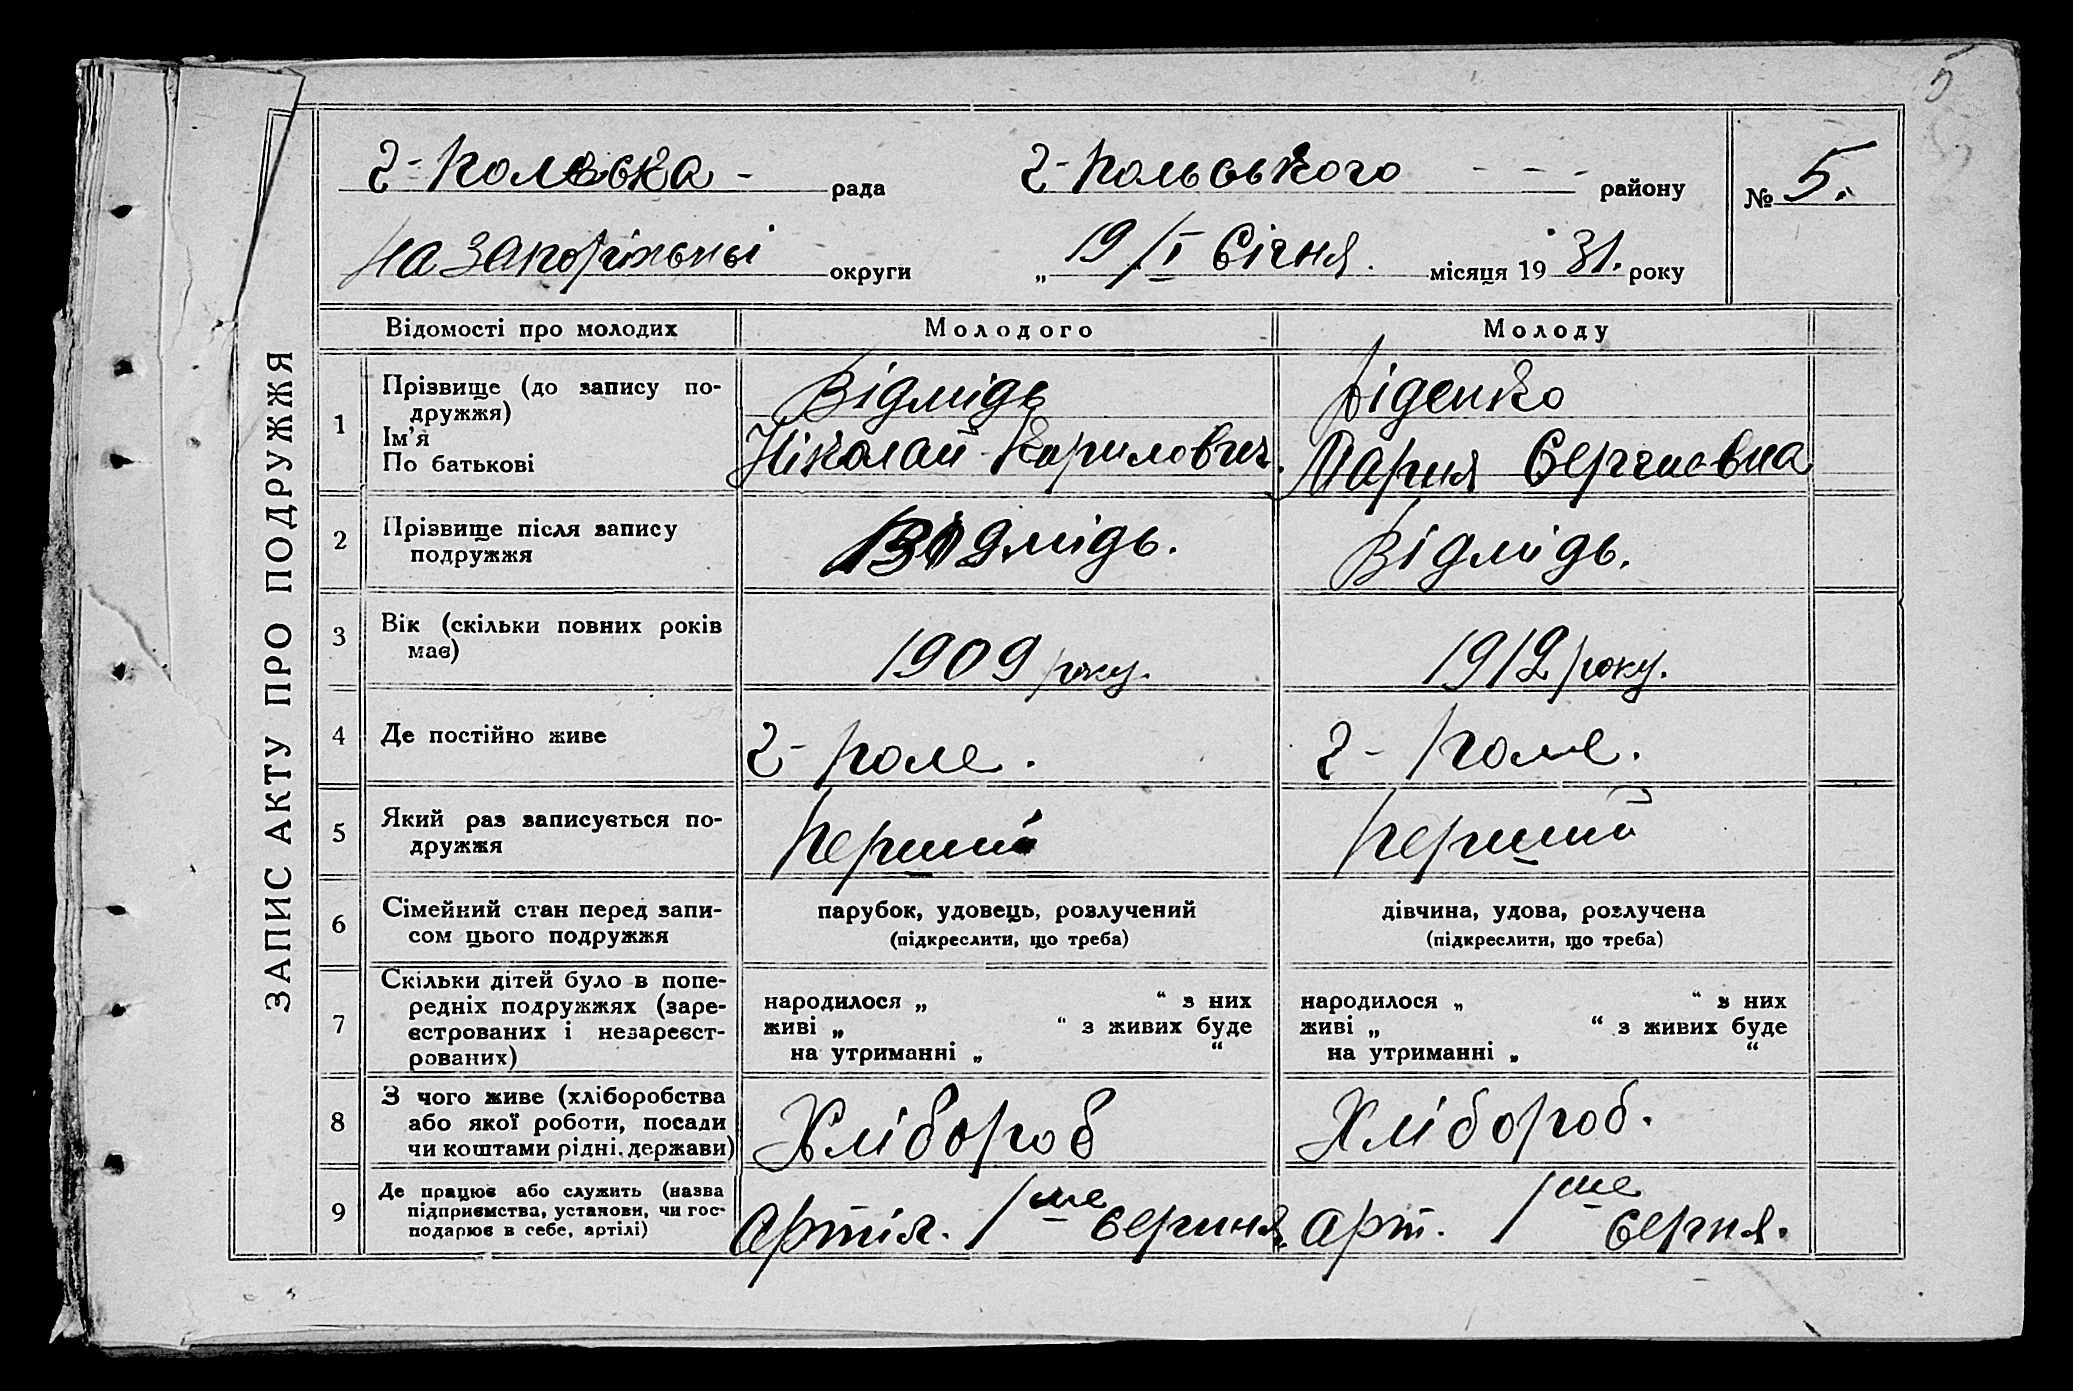 5
ЗАПИС АКТУ ПРО ПОДРУЖЖЯ
Г-Польська - рада Г-Польського - - - району № 5.
округи „ 19/I Січня. місяця 19 31. року
Відомості про молодих Молодого Молоду
1 Прізвище (до запису по-
дружжя)
Ім'я
По батькові
Відмідь
Ніколай Кирилович.
Діденко
Мария Сергиевна
2 Прізвище після запису
подружжя
Відмідь. Відмідь.
3 Вік (скільки повних років
має)
1909 року. 1912 року.
4 Де постійно живе Г-Поле. Г-Поле.
5 Який раз записується по-
дружжя
Перший Перший
6 Сімейний стан перед запи-
сом цього подружжя
парубок, удовець, розлучений
(підкреслити, що треба)
дівчина, удова, розлучена
(підкреслити, що треба)
7 Скільки дітей було в попе-
редніх подружжях (заре-
єстрованих і незареєст-
рованих)
народилося „ “ з них
живі „ “ з живих буде
на утриманні „ “
народилося „ “ з них
живі „ “ з живих буде
на утриманні „ “
8 З чого живе (хліборобства
або якої роботи, посади
чи коштами рідні, держави)
Хлібороб Хлібороб.
9 Де працює або служить (назва
підприємства, установи, чи гос-
подарює в себе, артілі)
Артіл. 1ше Серпня
Арт. 1ше Серпня.